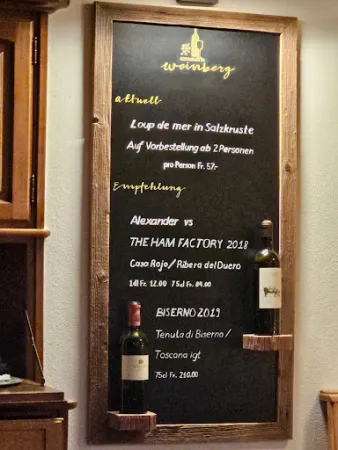 weinberg
aktuell
Loup de mer in Salzkruste
Auf Vorbestellung ab 2 Personen
pro Person Fr. 57.-
Empfehlung
Alexander vs
THE HAM FACTORY 2018
Casa Rojo / Ribera del Duero
1dl Fr. 12.00 75cl Fr. 84.00
BISERNO 2019
Tenuta di Biserno /
Toscana igt
75cl Fr. 210.00